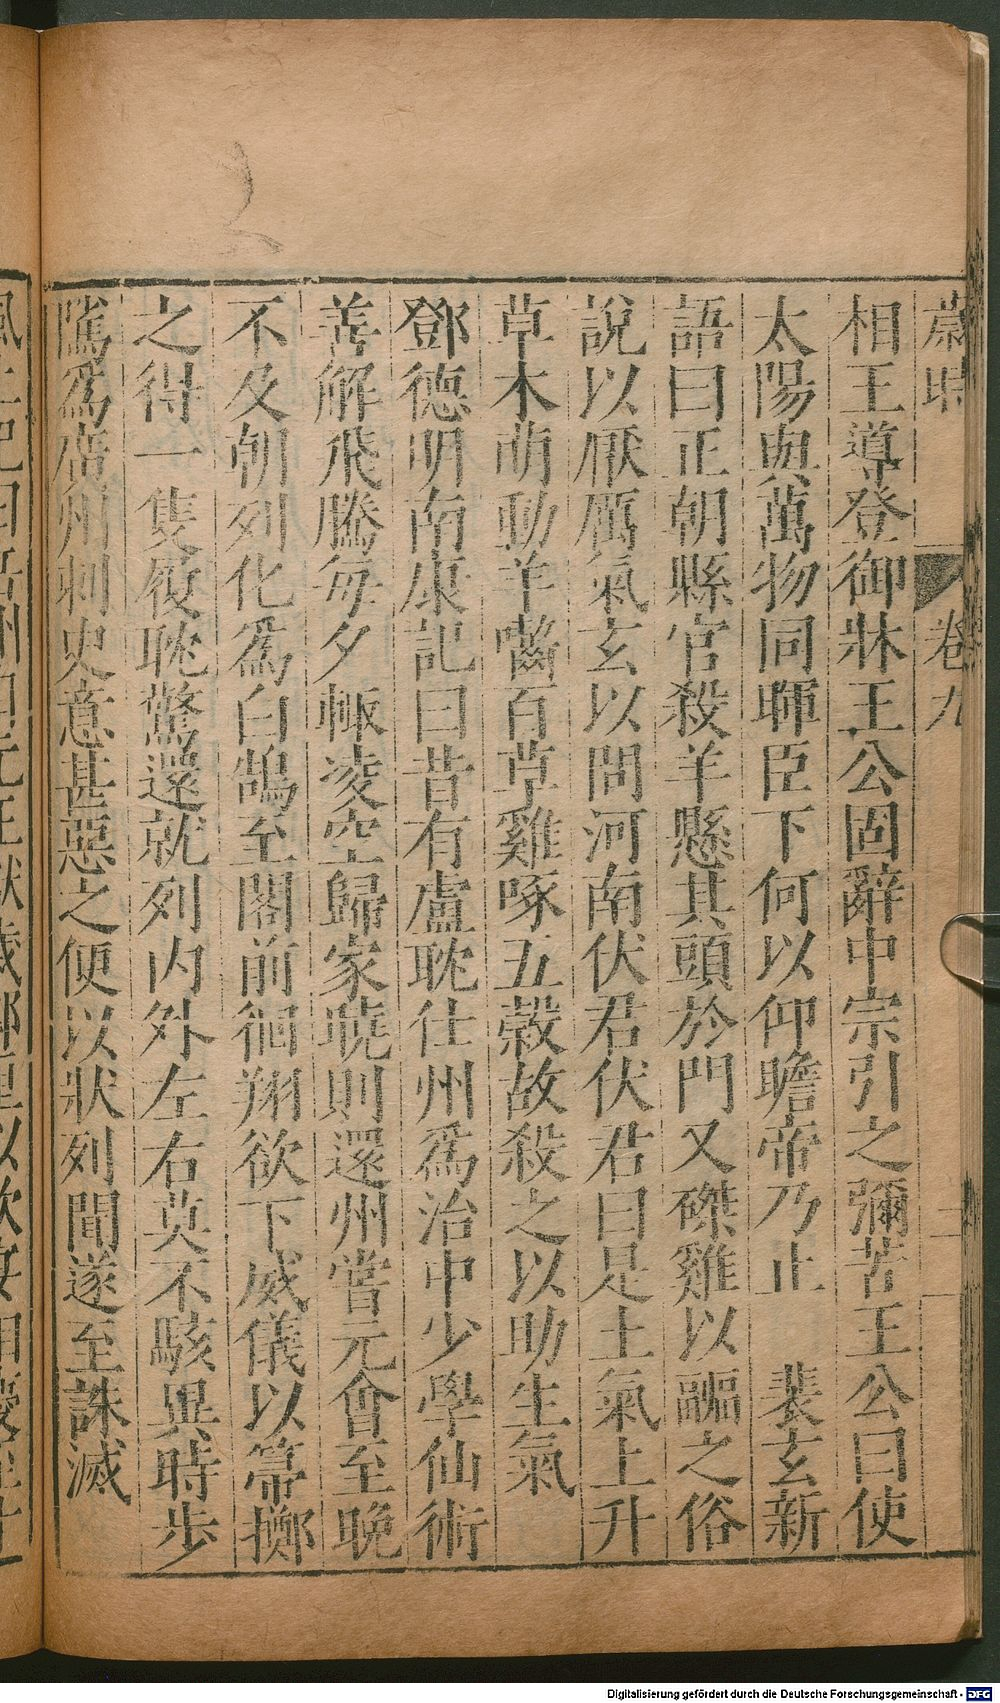 歲時
卷九
相王導登御牀王公固辭中宗引之彌苦王公曰使
太陽與萬物同暉臣下何以仰瞻帝乃止 裴玄新
語曰正朝縣官殺羊懸其頭於門又磔雞以副之俗
說以厭厲氣玄以問河南伏君伏君曰是土氣上升
草木萌動羊嚙百草雞啄五穀故殺之以助生氣
鄧德明南康記曰昔有盧耽仕州爲治中少學仙術
善解飛騰每夕輒凌空歸家曉則還州嘗元會至晚
不及朝列化爲白鵠至閣前徊翔欲下威儀以箒擲
之得一隻履耽驚還就列內外左右莫不駭異時步
隲爲廣州刺史意甚惡之便以狀列聞遂至誅滅
Digitalisierung gefördert durch die Deutsche Forschungsgemeinschaft - DFG